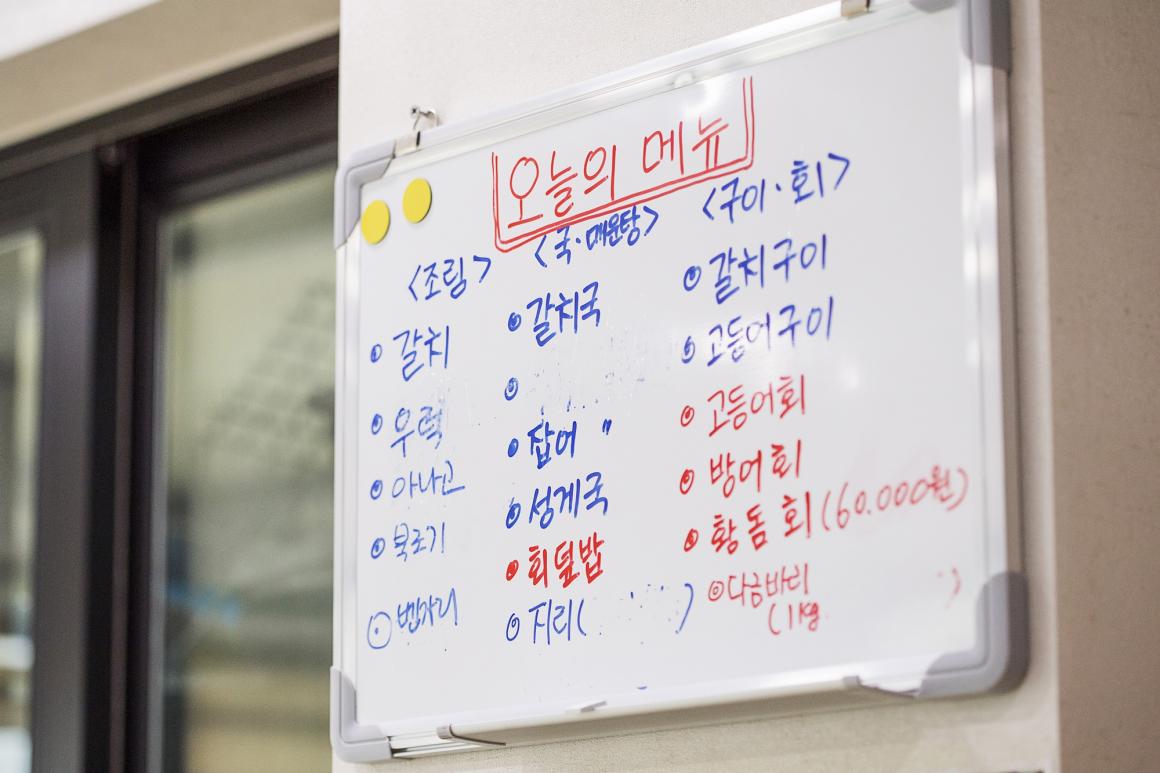 오늘의 메뉴
<조림>
◉ 갈치
◉ 우럭
◉ 아나고
◉ 북조기
◉ 벤자리
<국·매운탕>
◉ 갈치국
◉
◉ 잡어 "
◉ 성게국
◉ 회덮밥
◉ 지리( )
<구이·회>
◉ 갈치구이
◉ 고등어구이
◉ 고등어회
◉ 방어회
◉ 황돔회(60.000원)
◉ 다금바리
(1kg )